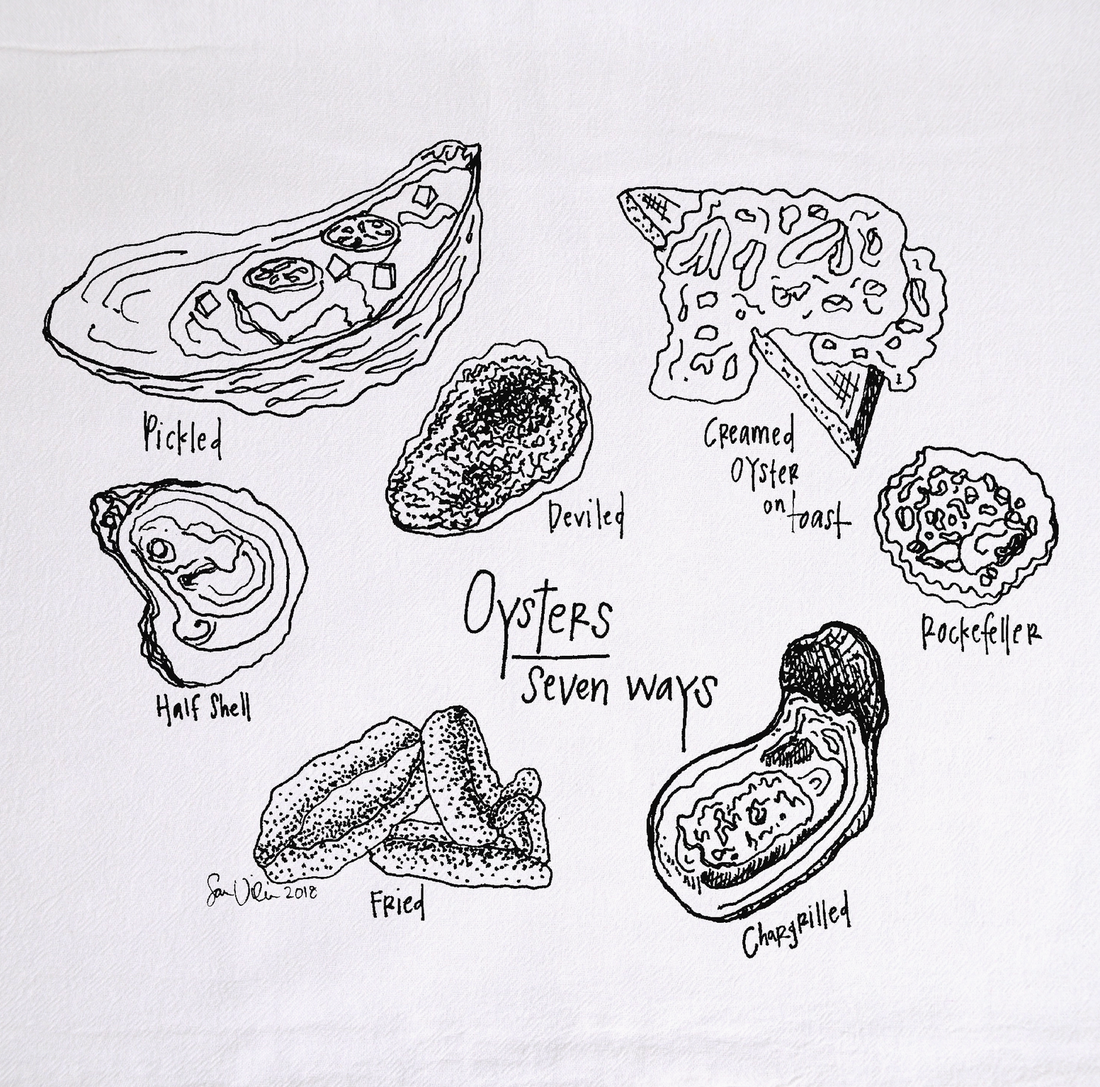 Pickled
Creamed
Oyster
on toast
Deviled
Half Shell
Oysters
Seven Ways
Rockefeller
2018
Fried
Chargrilled